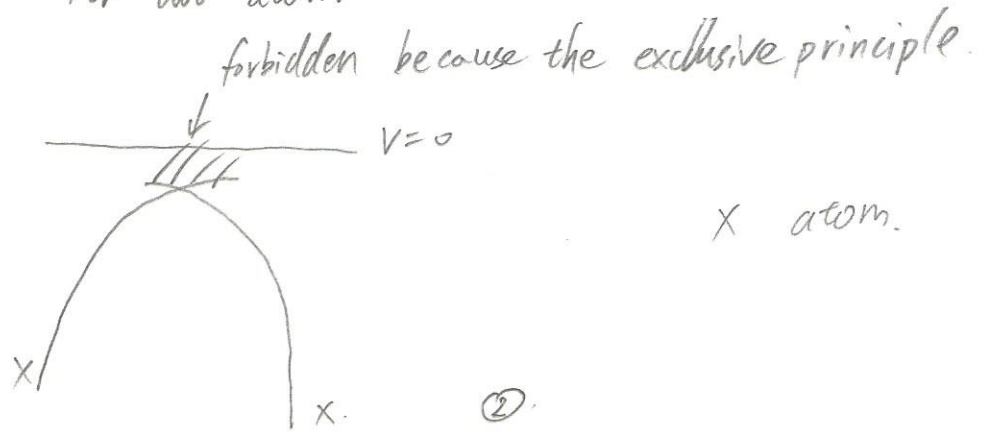 For two atom.
forbidden because the exclusive principle.
V=0
X atom.
X
X.
②.